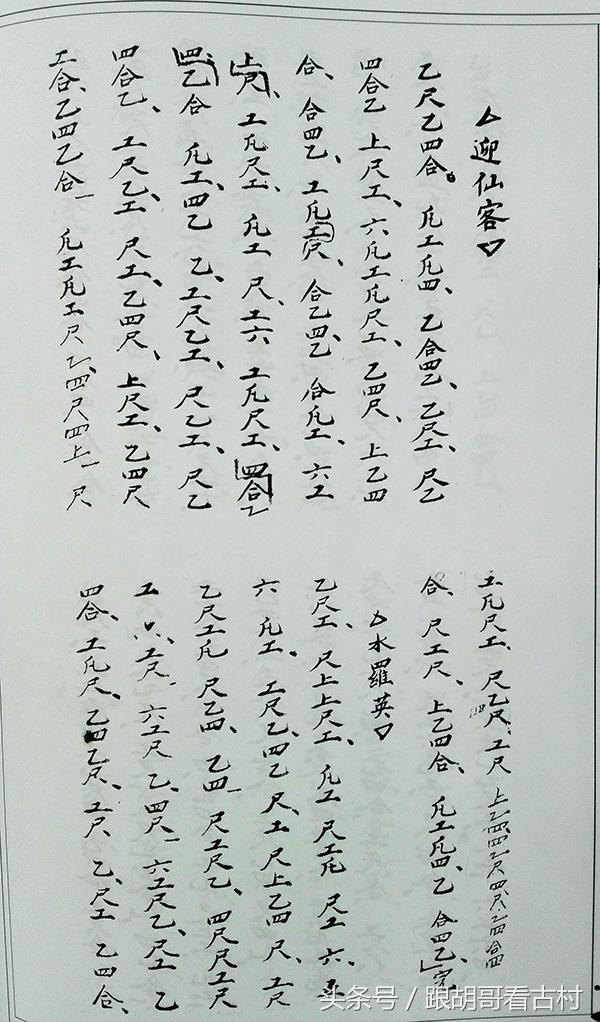 迎仙客
乙尺乙四合。凡工凡四、乙合四乙、乙尺工、尺乙
四合乙 上尺工、六凡工凡尺工、乙四尺、上乙四
合、合四乙、工凡工尺、合乙四、乙 合凡工、六工
上尺、工凡尺工、凡工 尺、工六 工凡尺工、四合乙
四乙合 凡工、四乙 乙、工尺乙工、尺乙工、尺乙
四合乙、工尺乙、工 尺工、乙四尺、上尺工、乙四尺
工合、乙四乙合一 凡工凡工尺 乙、四、尺四上一 尺
工凡尺工、尺乙尺、工尺 上乙四
合、尺工尺、上乙四合、凡工凡四、乙 合四乙、完
水羅英
乙尺工、尺上上尺工、凡工 尺工凡 尺工 六、
六 凡工、工尺乙、四乙 尺、工 尺上乙四 尺、工尺
乙尺工凡 尺乙四、乙四一 尺工尺乙、四尺尺工尺
工 六、工尺 六工尺 乙、四尺一 六工尺乙、尺工 乙
四合、工凡尺、乙四乙尺、工尺 乙、尺工 乙四合、
头条号 / 跟胡哥看古村